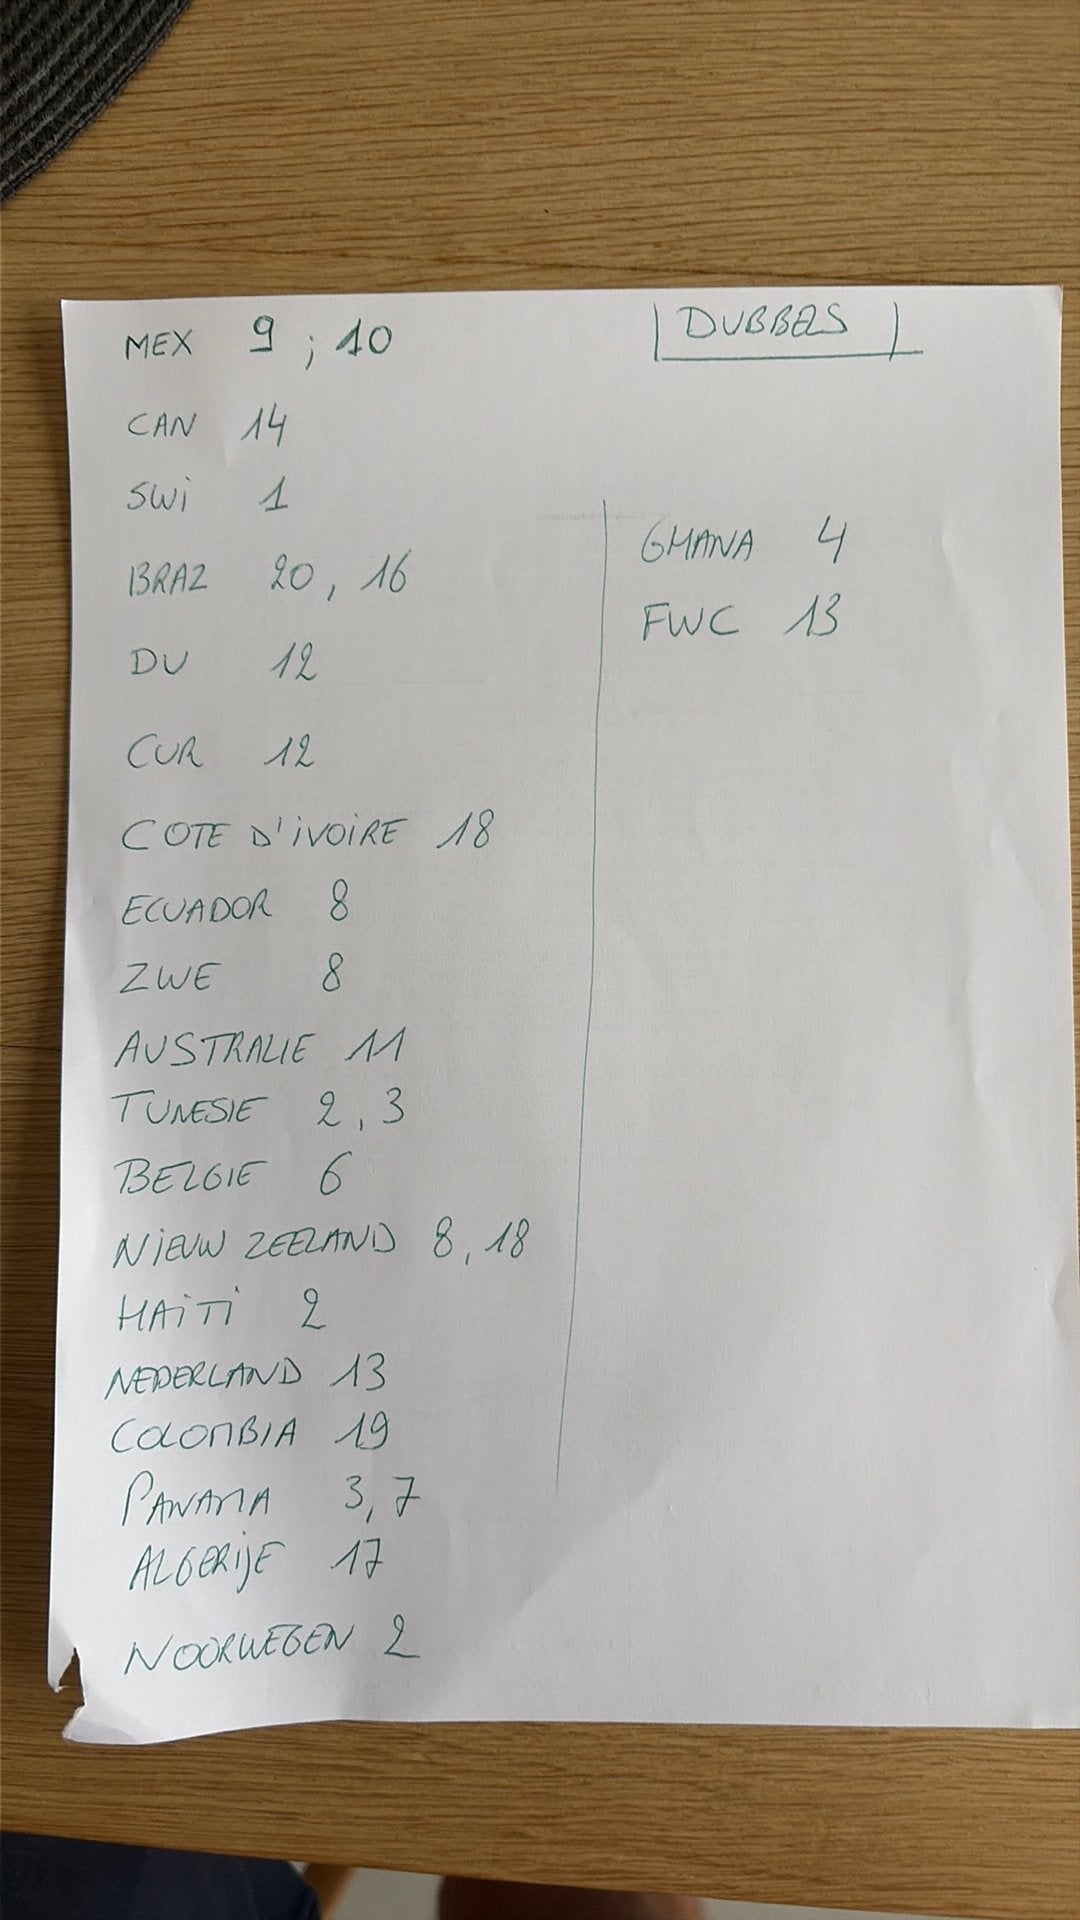 MEX 9 ; 10
CAN 14
SWI 1
BRAZ 20, 16
DU 12
CUR 12
COTE D'IVOIRE 18
ECUADOR 8
ZWE 8
AUSTRALIE 11
TUNESIE 2, 3
BELGIE 6
NIEUW ZEELAND 8, 18
HAITI 2
NEDERLAND 13
COLOMBIA 19
PANAMA 3, 7
ALGERIJE 17
NOORWEGEN 2
DUBBELS
GHANA 4
FWC 13